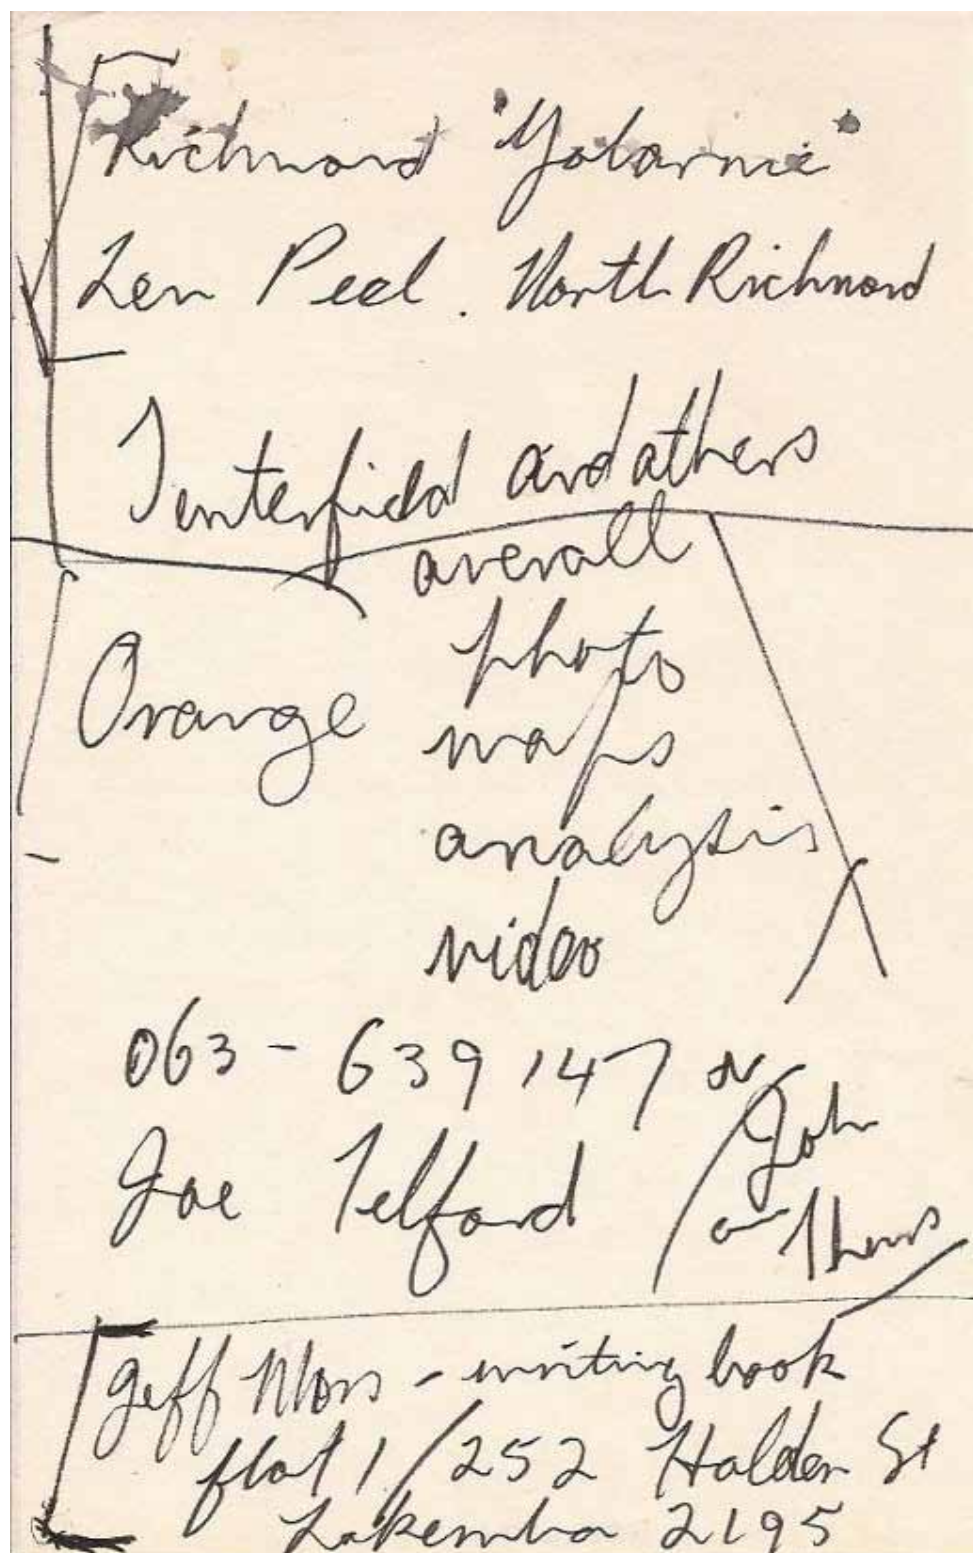 Richmond "Yobarnie"
Len Peel. North Richmond
Tenterfield and others
overall
Orange photo
maps
analysis
video
063 - 639147 or
Joe Telford John
on Thurs
Geff - writing book
flat 1/252 Halden St
Lakemba 2195